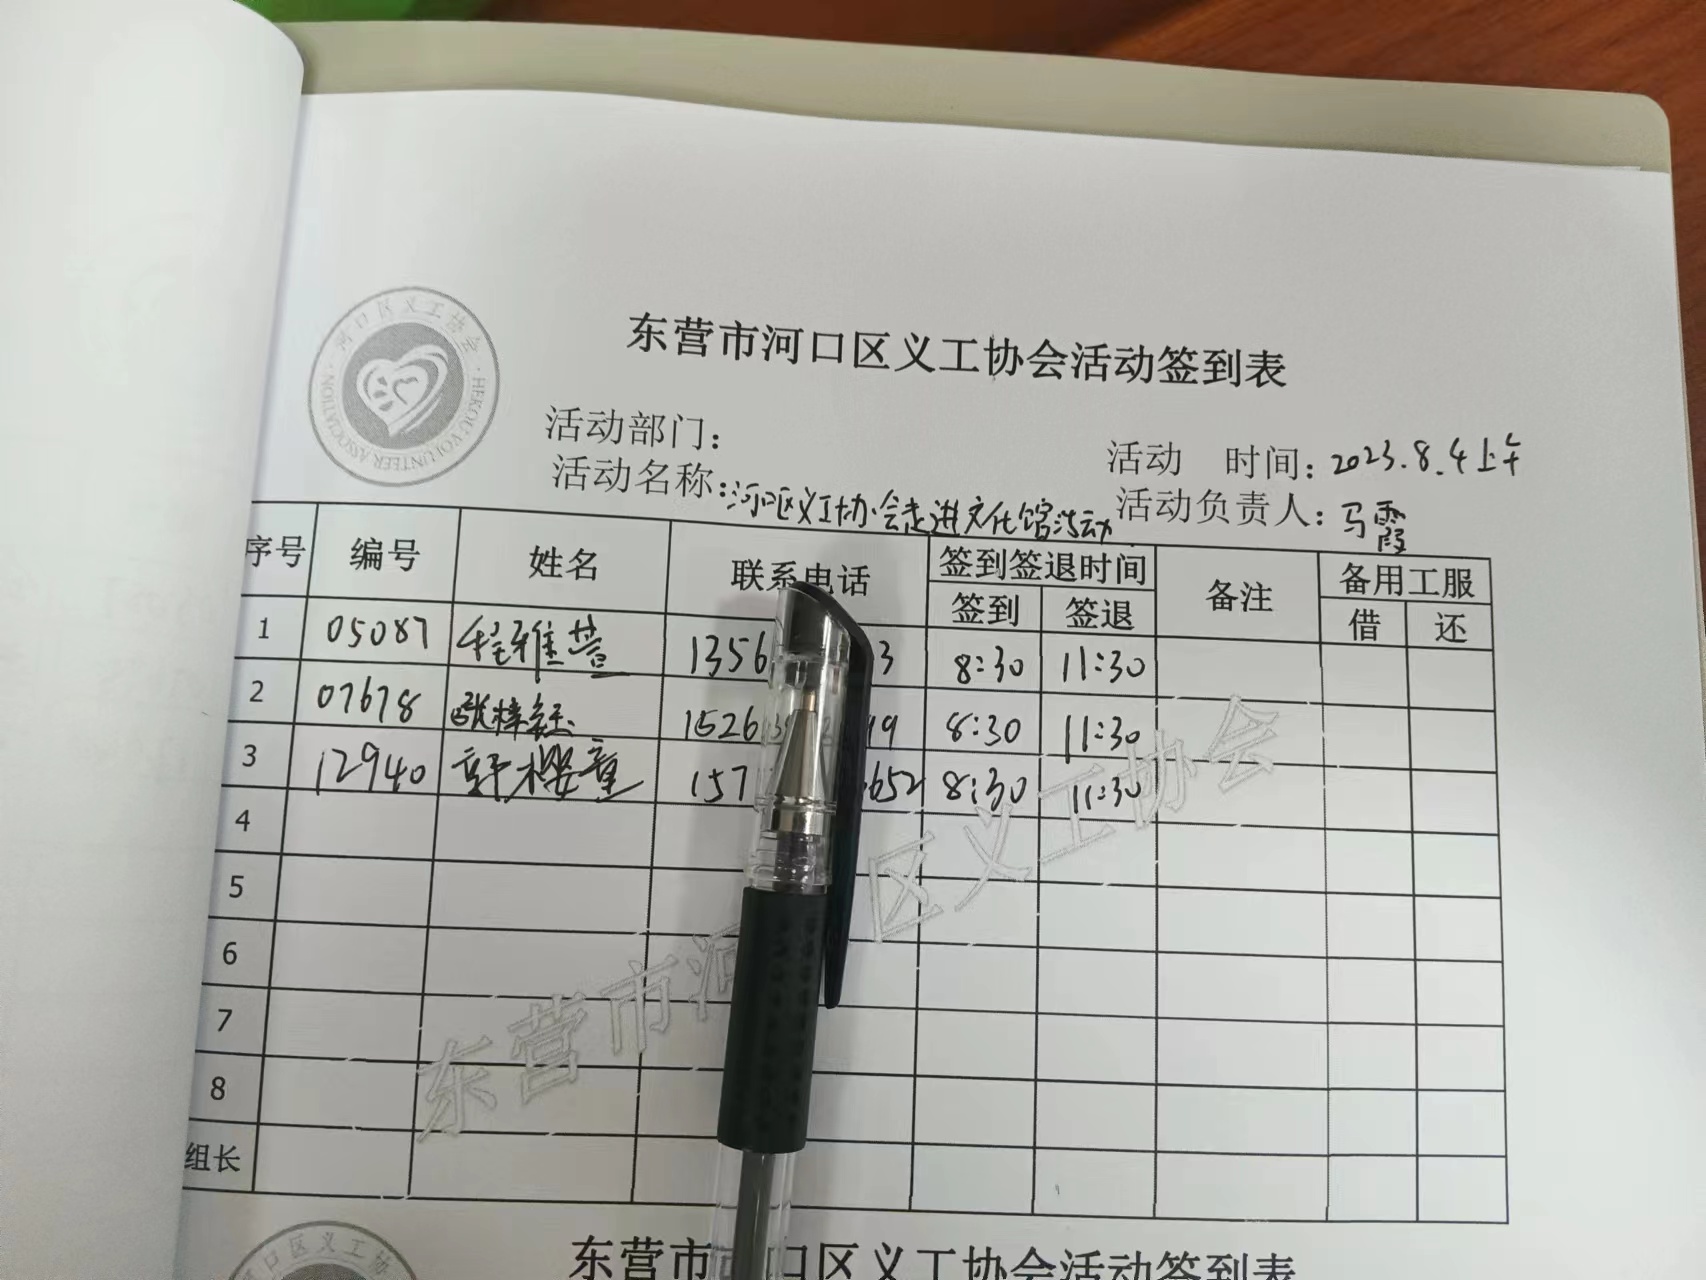 河口区义工协会
HEKOU VOLUNTEER ASSOCIATION
东营市河口区义工协会活动签到表
活动部门：
活动 时间：2023.8.4上午
活动名称：河口区义工协会走进文化馆活动
活动负责人：马霞
序号 编号 姓名 联系电话 签到签退时间 备注 备用工服
签到 签退 借 还
1 05087 程雅营 1356 3 8:30 11:30
2 07678 张梓 1526 19 8:30 11:30
3 12940 樱童 157 652 8:30 11:30
4
5
6
7
8
组长
东营市河 区义工协会
河口区义工协
东营市 口区义工协会活动签到表